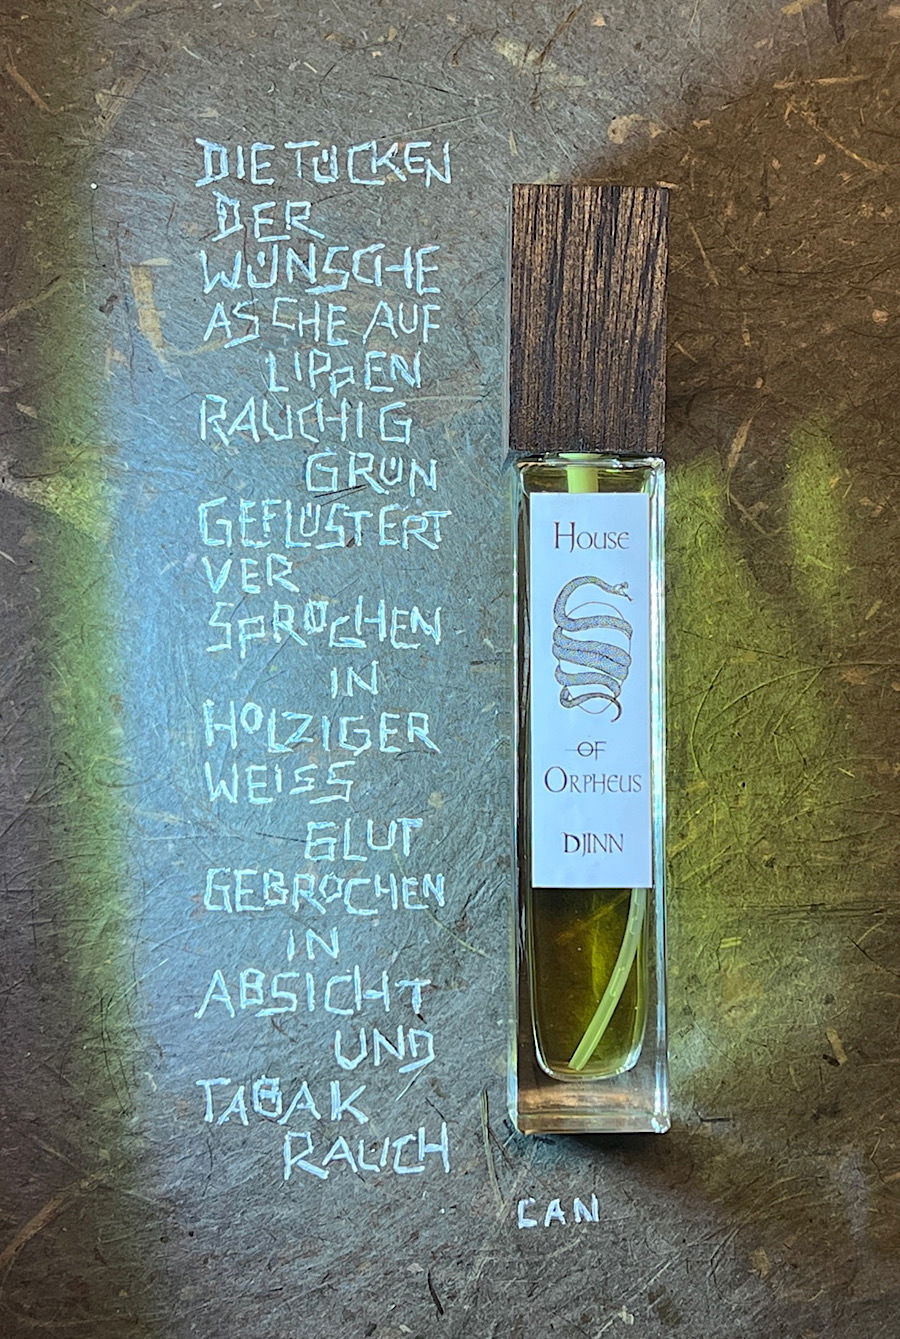 DIE TÜCKEN
DER
WÜNSCHE
ASCHE AUF
LIPPEN
RAUCHIG
GRÜN
GEFLÜSTERT
VER
SPROCHEN
IN
HOLZIGER
WEISS
GLUT
GEBROCHEN
IN
ABSICHT
UND
TABAK
RAUCH
CAN
House
of
Orpheus
DJINN